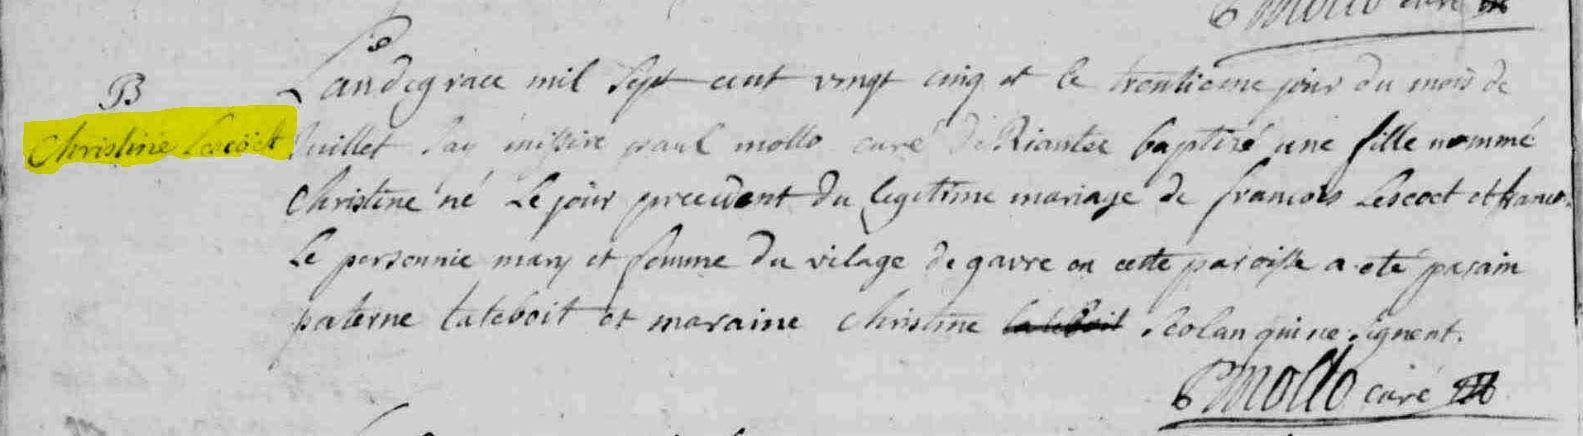 P Mollo curé
B
Christine Lescoct
L'an de grace mil sept cent vingt cinq et le trentieme jour du mois de
Juillet Jay missire paul mollo curé de Riantec baptizé une fille nommé
Christine né Le jour precedent du legitime mariage de francois Lescoct et
Le personnic mary et femme du vilage de gavre en cette paroisse a eté parain
paterne tateboit et maraine Christine Scolan qui ne signent.
P Mollo curé